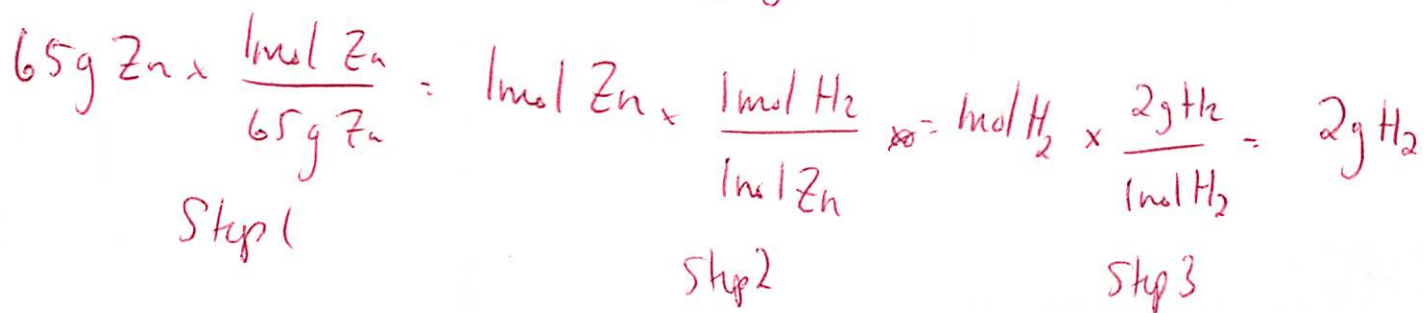 65g Zn x 1mol Zn / 65g Zn = 1mol Zn x 1mol H2 / 1mol Zn = 1mol H2 x 2g H2 / 1mol H2 = 2g H2
Step 1
Step 2
Step 3